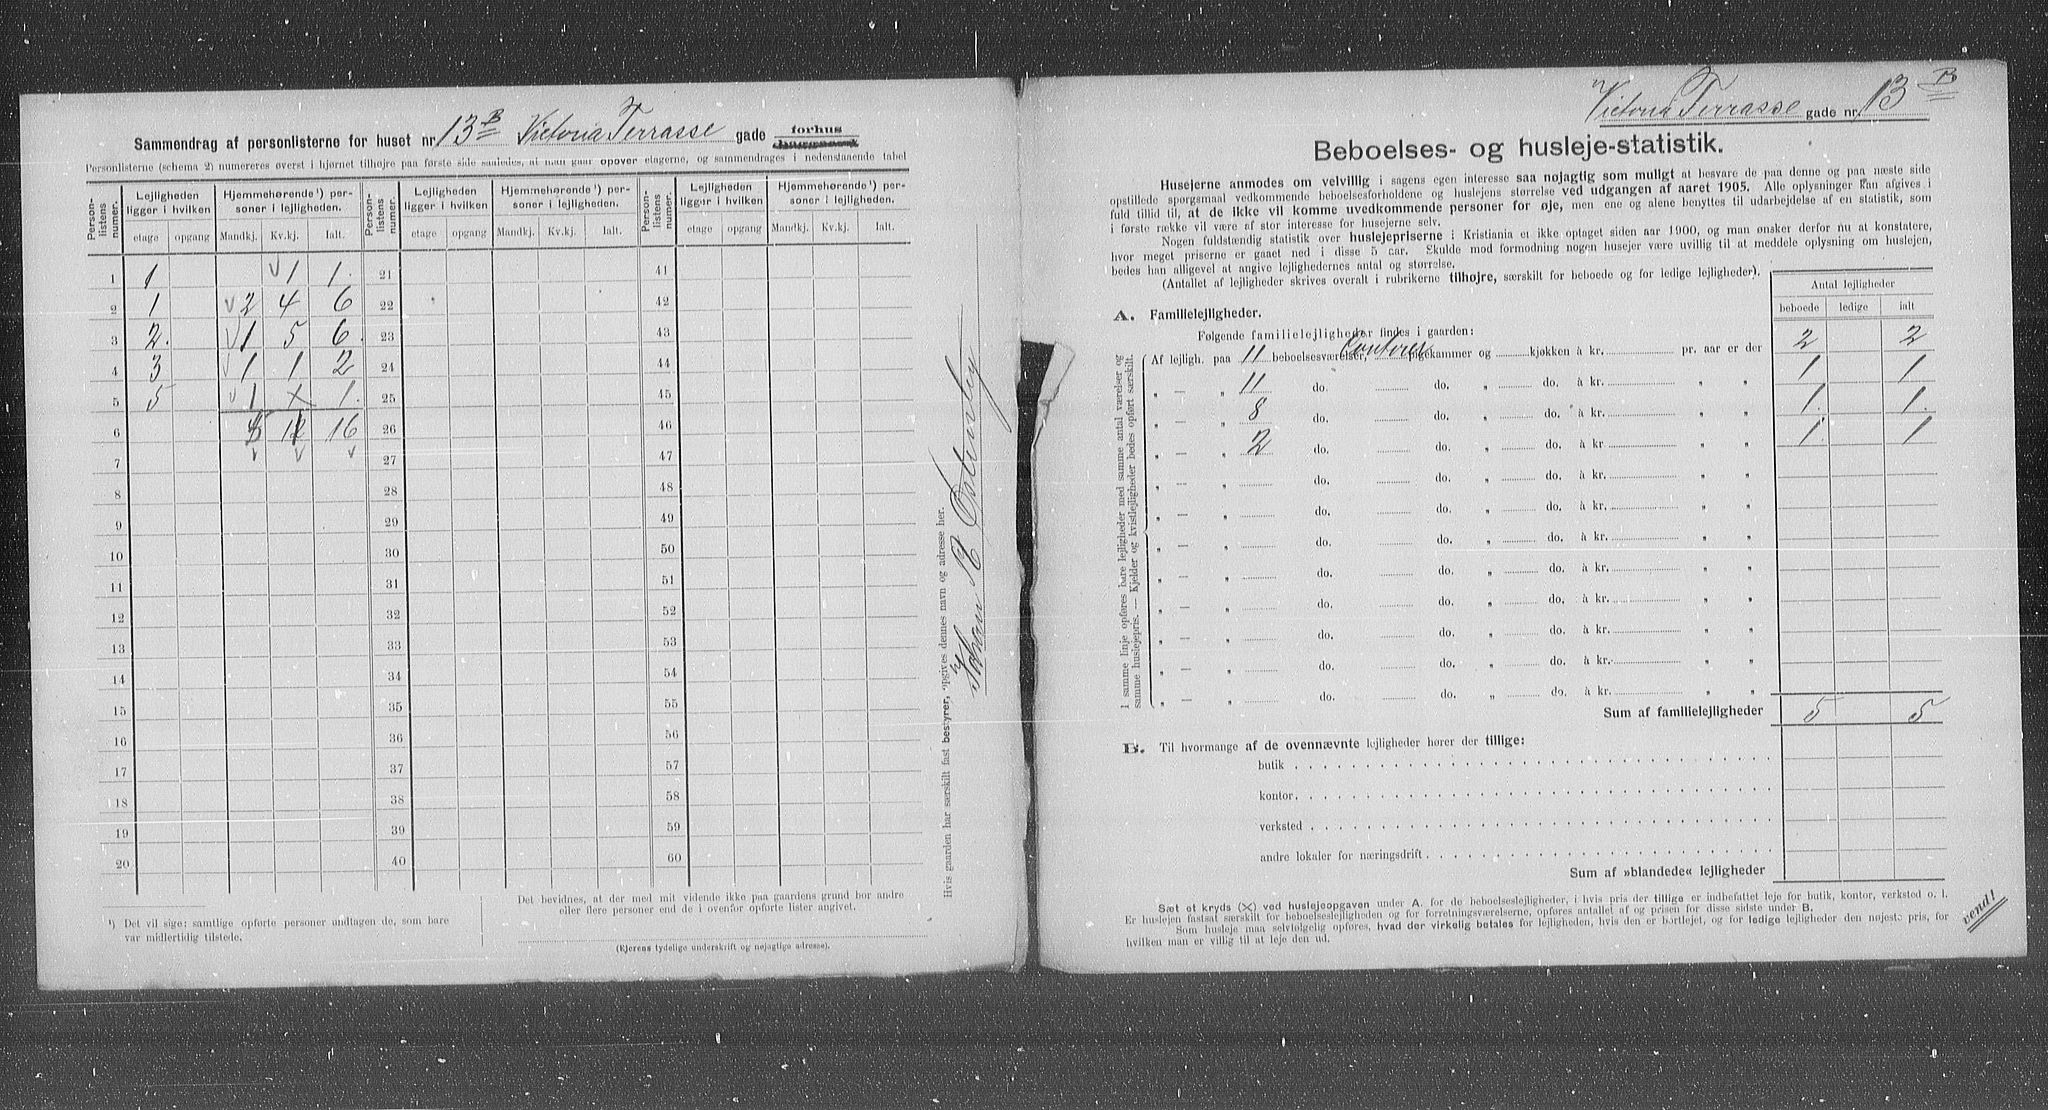 Sammendrag af personlisterne for huset nr. 13 B Victoria Terrasse gade forhus
Personlisterne (schema 2) numereres øverst i hjørnet tilhøjre paa første side saaledes, at man gaar opover etagerne, og sammendrages i nedenstaaende tabel
Personlistens nummer. | Lejligheden ligger i hvilken | Hjemmehørende¹) personer i lejligheden. | Personlistens nummer. | Lejligheden ligger i hvilken | Hjemmehørende¹) personer i lejligheden. | Personlistens nummer. | Lejligheden ligger i hvilken | Hjemmehørende¹) personer i lejligheden.
etage | opgang | Mandkj. | Kv.kj. | Ialt. | etage | opgang | Mandkj. | Kv.kj. | Ialt. | etage | opgang | Mandkj. | Kv.kj. | Ialt.
1 | 1 | | | √1 | 1. | 21 | 41
2 | 1 | | √2 | 4 | 6 | 22 | 42
3 | 2. | | √1 | 5 | 6. | 23 | 43
4 | 3 | | √1 | 1 | 2 | 24 | 44
5 | 5 | | √1 | × | 1. | 25 | 45
6 | | | 5 | 11 | 16 | 26 | 46
7 | 27 | 47
8 | 28 | 48
9 | 29 | 49
10 | 30 | 50
11 | 31 | 51
12 | 32 | 52
13 | 33 | 53
14 | 34 | 54
15 | 35 | 55
16 | 36 | 56
17 | 37 | 57
18 | 38 | 58
19 | 39 | 59
20 | 40 | 60
¹) Det vil sige: samtlige opførte personer undtagen de, som bare
var midlertidig tilstede.
Det bevidnes, at der med mit vidende ikke paa gaardens grund bor andre
eller flere personer end de i ovenfor opførte lister angivet.
(Ejerens tydelige underskrift og nøjagtige adresse).
Hvis gaarden har særskilt fast bestyrer, opgives dennes navn og adresse her.
Johan
Victoria Terrasse gade nr. 13 B
Beboelses- og husleje-statistik.
Husejerne anmodes om velvillig i sagens egen interesse saa nøjagtig som muligt at besvare de paa denne og paa næste side
opstillede spørgsmaal vedkommende beboelsesforholdene og huslejens størrelse ved udgangen af aaret 1905. Alle oplysninger kan afgives i
fuld tillid til, at de ikke vil komme uvedkommende personer for øje, men ene og alene benyttes til udarbejdelse af en statistik, som
i første række vil være af stor interesse for husejerne selv.
Nogen fuldstændig statistik over huslejepriserne i Kristiania et ikke optaget siden aar 1900, og man ønsker derfor nu at konstatere,
hvor meget priserne er gaaet ned i disse 5 aar. Skulde mod formodning nogen husejer være uvillig til at meddele oplysning om huslejen,
bedes han alligevel at angive lejlighedernes antal og størrelse.
(Antallet af lejligheder skrives overalt i rubrikerne tilhøjre, særskilt for beboede og for ledige lejligheder).
Antal lejligheder
beboede | ledige | ialt
A. Familielejligheder.
Følgende familielejligheder findes i gaarden:
I samme linje opføres bare lejligheder med samme antal værelser og
samme huslejepris. — Kjelder og kvistlejligheder bedes opført særskilt.
Af lejligh. paa 11 beboelsesværelser, Contorer pigekammer og kjøkken à kr. pr. aar er der 2 | 2
„ — „ 11 do. do. „ do. à kr. „ „ 1 | 1
„ — „ 8 do. do. „ do. à kr. „ „ 1. | 1.
„ — „ 2 do. do. „ do. à kr. „ „ 1. | 1
„ — „ do. do. „ do. à kr. „ „
„ — „ do. do. „ do. à kr. „ „
„ — „ do. do. „ do. à kr. „ „
„ — „ do. do. „ do. à kr. „ „
„ — „ do. do. „ do. à kr. „ „
„ — „ do. do. „ do. à kr. „ „
„ — „ do. do. „ do. à kr. „ „
„ — „ do. do. „ do. à kr. „ „
Sum af familielejligheder 5 | 5
B. Til hvormange af de ovennævnte lejligheder hører der tillige:
butik
kontor
verksted
andre lokaler for næringsdrift
Sum af »blandede« lejligheder
Sæt et kryds (×) ved huslejeopgaven under A. for de beboelseslejligheder, i hvis pris der tillige er indbefattet leje for butik, kontor, verksted o. l.
Er huslejen fastsat særskilt for beboelseslejligheden og for forretningsværelserne, opføres antallet af og prisen for disse sidste under B.
Som husleje maa selvfølgelig opføres, hvad der virkelig betales for lejligheden, hvis den er bortlejet, og for ledige lejligheder den nøjeste pris, for
hvilken man er villig til at leje den ud.
vend!